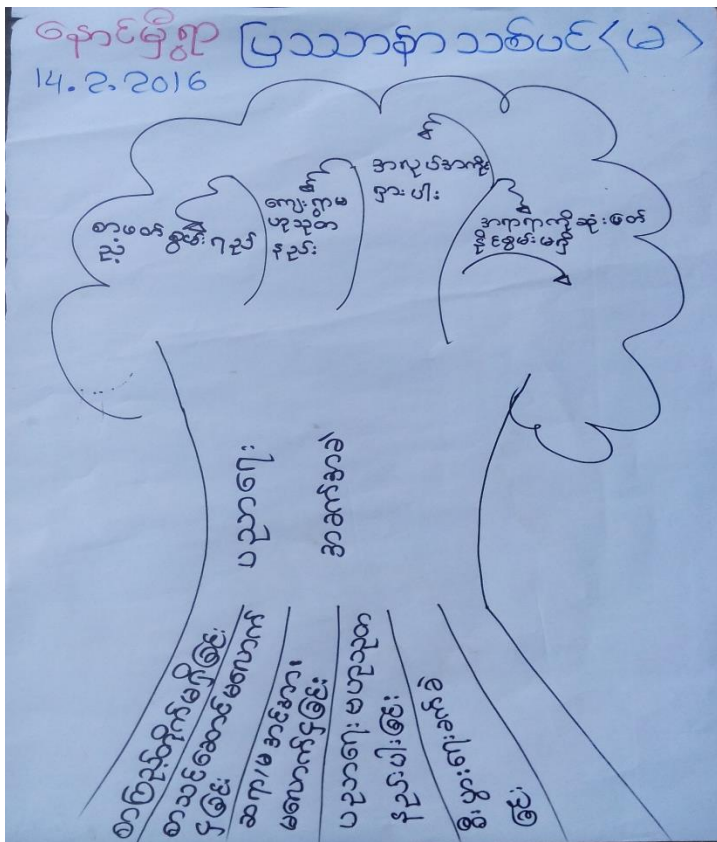 နောင်မှိုရွာ ပြဿနာသစ်ပင် <မ>
14.2.2016
စာဖတ်စွမ်းရည်
ညံ့
ကျေးရွာမှ
ဗဟုသုတ
နည်း
အလုပ်အကိုင်
ရှားပါး
အရာရာကိုဆုံးဖြတ်
နိုင်စွမ်းမရှိ
ပညာရေး
အခက်အခဲ
စာကြည့်တိုက်မရှိခြင်း
စာသင်ဆောင်မလောက်
ငှခြင်း
ဆရာ/မ အင်အား
မလောက်ငှခြင်း
ပညာရေး ဗဟုသုတ
နည်းပါးခြင်း
စီးပွားရေးခက်ခဲ
ခြင်း